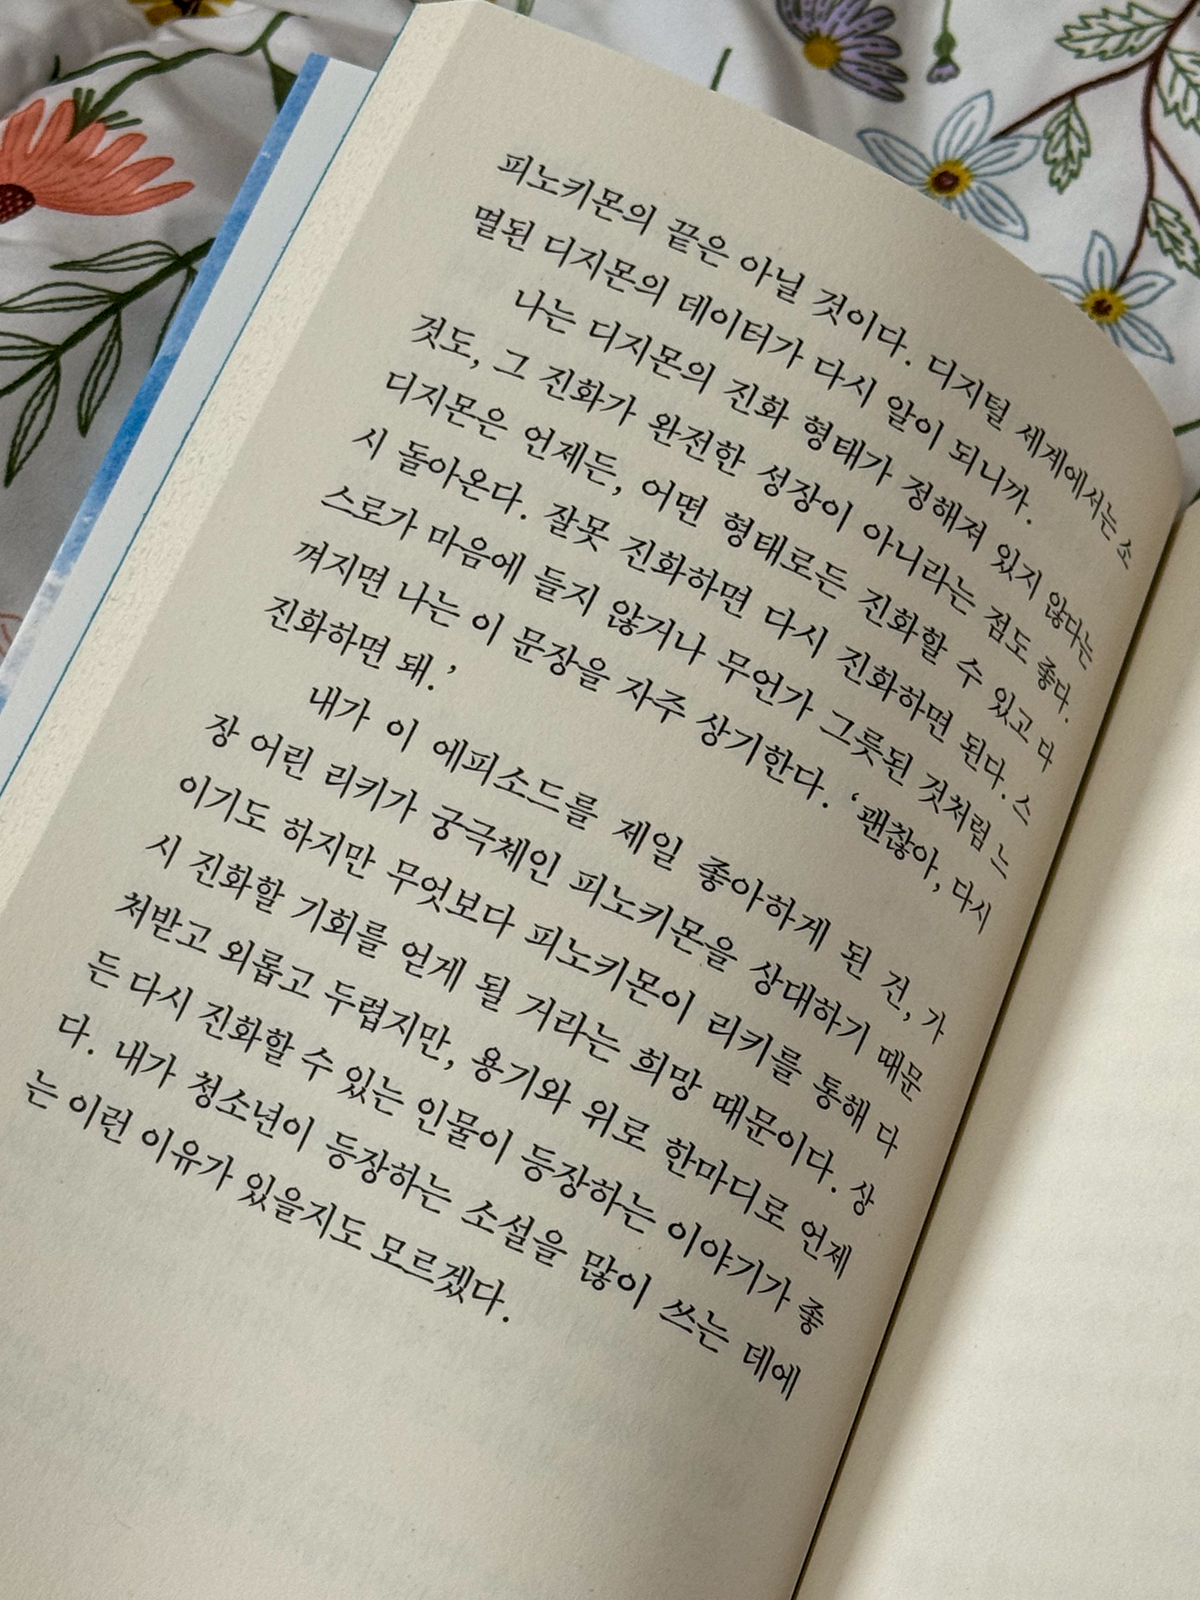 피노키몬의 끝은 아닐 것이다. 디지털 세계에서는 소
멸된 디지몬의 데이터가 다시 알이 되니까.
나는 디지몬의 진화 형태가 정해져 있지 않다는
것도, 그 진화가 완전한 성장이 아니라는 점도 좋다.
디지몬은 언제든, 어떤 형태로든 진화할 수 있고 다
시 돌아온다. 잘못 진화하면 다시 진화하면 된다. 스
스로가 마음에 들지 않거나 무언가 그릇된 것처럼 느
껴지면 나는 이 문장을 자주 상기한다. ‘괜찮아, 다시
진화하면 돼.’
내가 이 에피소드를 제일 좋아하게 된 건, 가
장 어린 리키가 궁극체인 피노키몬을 상대하기 때문
이기도 하지만 무엇보다 피노키몬이 리키를 통해 다
시 진화할 기회를 얻게 될 거라는 희망 때문이다. 상
처받고 외롭고 두렵지만, 용기와 위로 한마디로 언제
든 다시 진화할 수 있는 인물이 등장하는 이야기가 좋
다. 내가 청소년이 등장하는 소설을 많이 쓰는 데에
는 이런 이유가 있을지도 모르겠다.